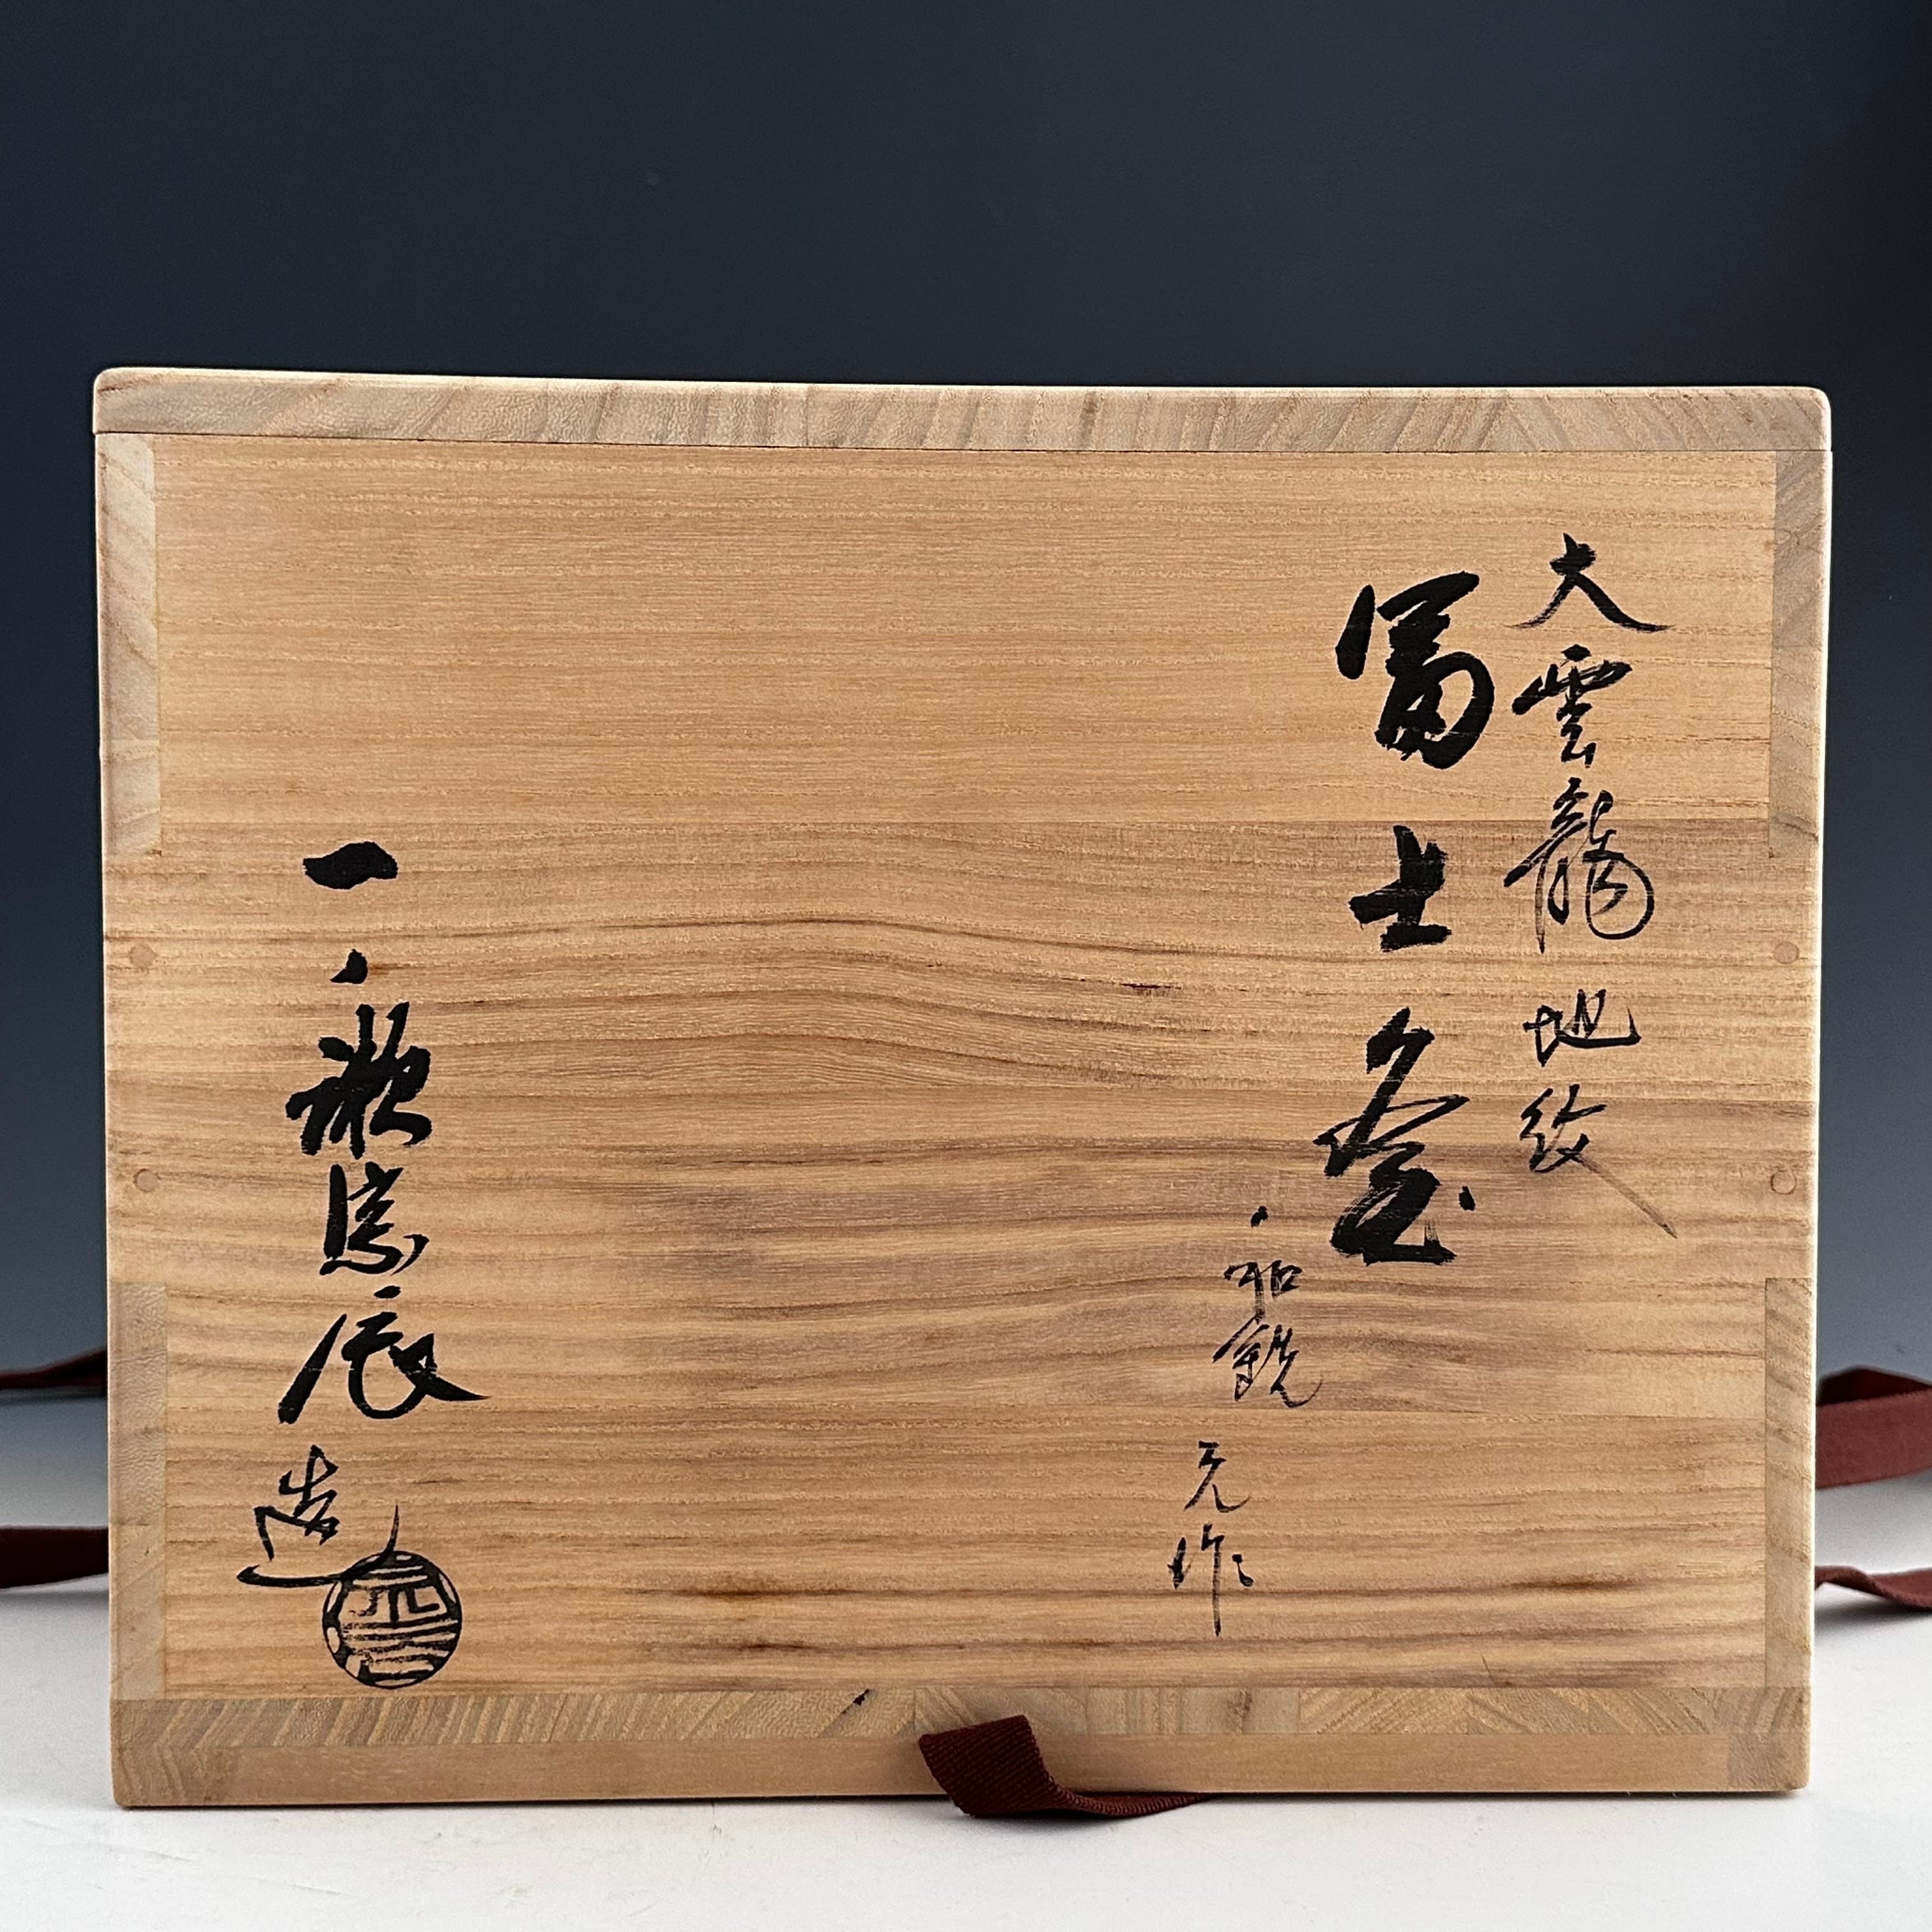 大雲龍地紋
冨士釜
和銑 元作
一ノ瀬宗辰
造